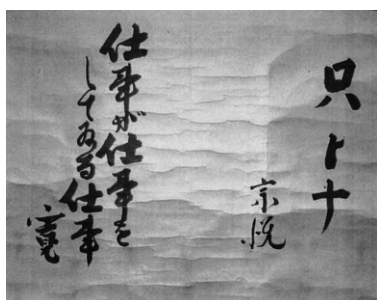 只ト十
宗悦
仕事が仕事を
してゐる仕事
寛